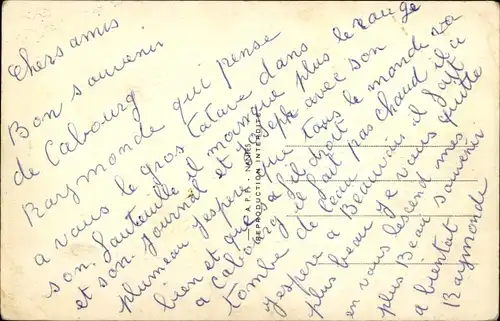 Chers amis
Bon souvenir
de Cabourg
Raymonde qui pense
a vous le gros tatave dans
son fauteuil il manque plus le
et son journal et Joseph avec son
plumeau j'espere que tous le monde va
bien et que a fil droit
a Cabourg il fait pas chaud il a
tombe de l'eau
j'espere a Beauvais il fait
plus beau je vous quitte
en vous mes
plus Beau souvenir
a bientat
Raymonde
A.P.R. - NANTES
REPRODUCTION INTERDITE